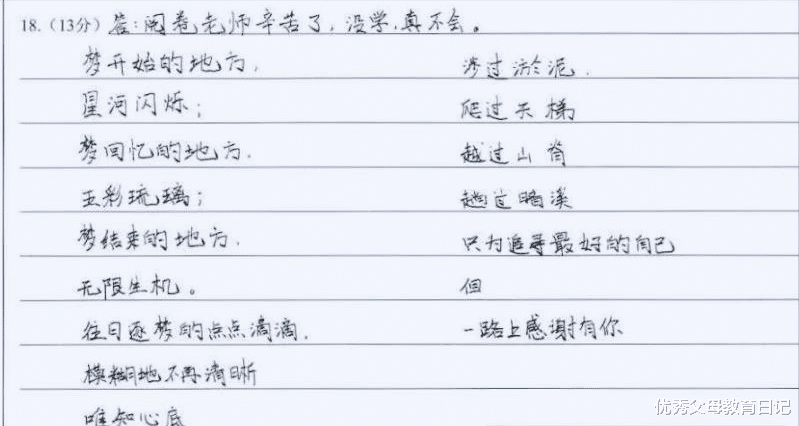 18.(13分) 答:阅卷老师辛苦了,没学,真不会。
梦开始的地方,
星河闪烁;
梦回忆的地方,
五彩琉璃;
梦结束的地方,
无限生机。
往日逐梦的点点滴滴,
模糊地不再清晰
唯知心底
涉过淤泥,
爬过天梯
越过山脊
趟过暗溪
只为追寻最好的自己
但
一路上感谢有你
优秀父母教育日记